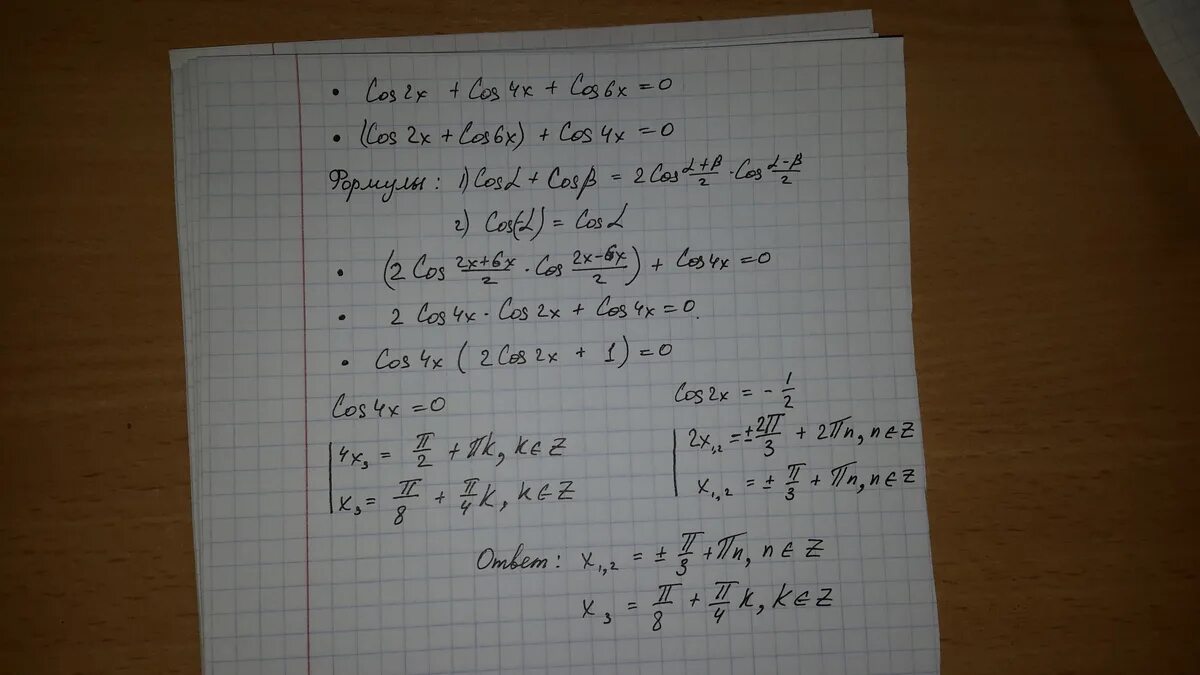 • Cos2x + Cos4x + Cos6x = 0
• (Cos2x + Cos6x) + Cos4x = 0
Формулы: 1) Cosα + Cosβ = 2Cos (α+β)/2 · Cos (α-β)/2
2) Cos(-α) = Cosα
• (2Cos (2x+6x)/2 · Cos (2x-6x)/2) + Cos4x = 0
• 2Cos4x · Cos2x + Cos4x = 0.
• Cos4x (2Cos2x + 1) = 0
Cos4x = 0
4x₃ = π/2 + πk, k∈Z
x₃ = π/8 + π/4 k, k∈Z
Cos2x = - 1/2
2x₁,₂ = ± 2π/3 + 2πn, n∈Z
x₁,₂ = ± π/3 + πn, n∈Z
Ответ: x₁,₂ = ± π/3 + πn, n∈Z
x₃ = π/8 + π/4 k, k∈Z